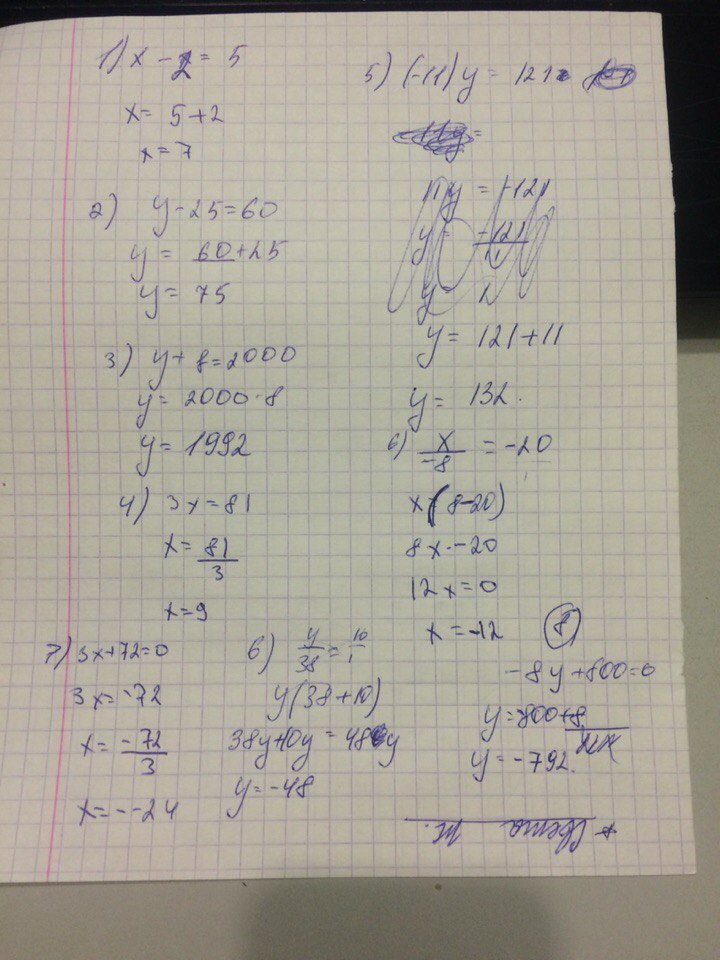 1) x - 2 = 5
x = 5 + 2
x = 7
2) y - 25 = 60
y = 60 + 25
y = 75
3) y + 8 = 2000
y = 2000 - 8
y = 1992
4) 3x = 81
x = 81/3
x = 9
5) (-11) y = 121
11y = -121
y = -121/11
y =
y = 121 + 11
y = 132.
6) x/-8 = -20
x (8-20)
8x - -20
12x = 0
x = -12
7) 3x + 72 = 0
3x = -72
x = -72/3
x = - -24
6) y/38 = 10/1
y(38+10)
38y + 10y = 48y
y = -48
8
-8y + 800 = 0
y = 800 + 8
y = -792.